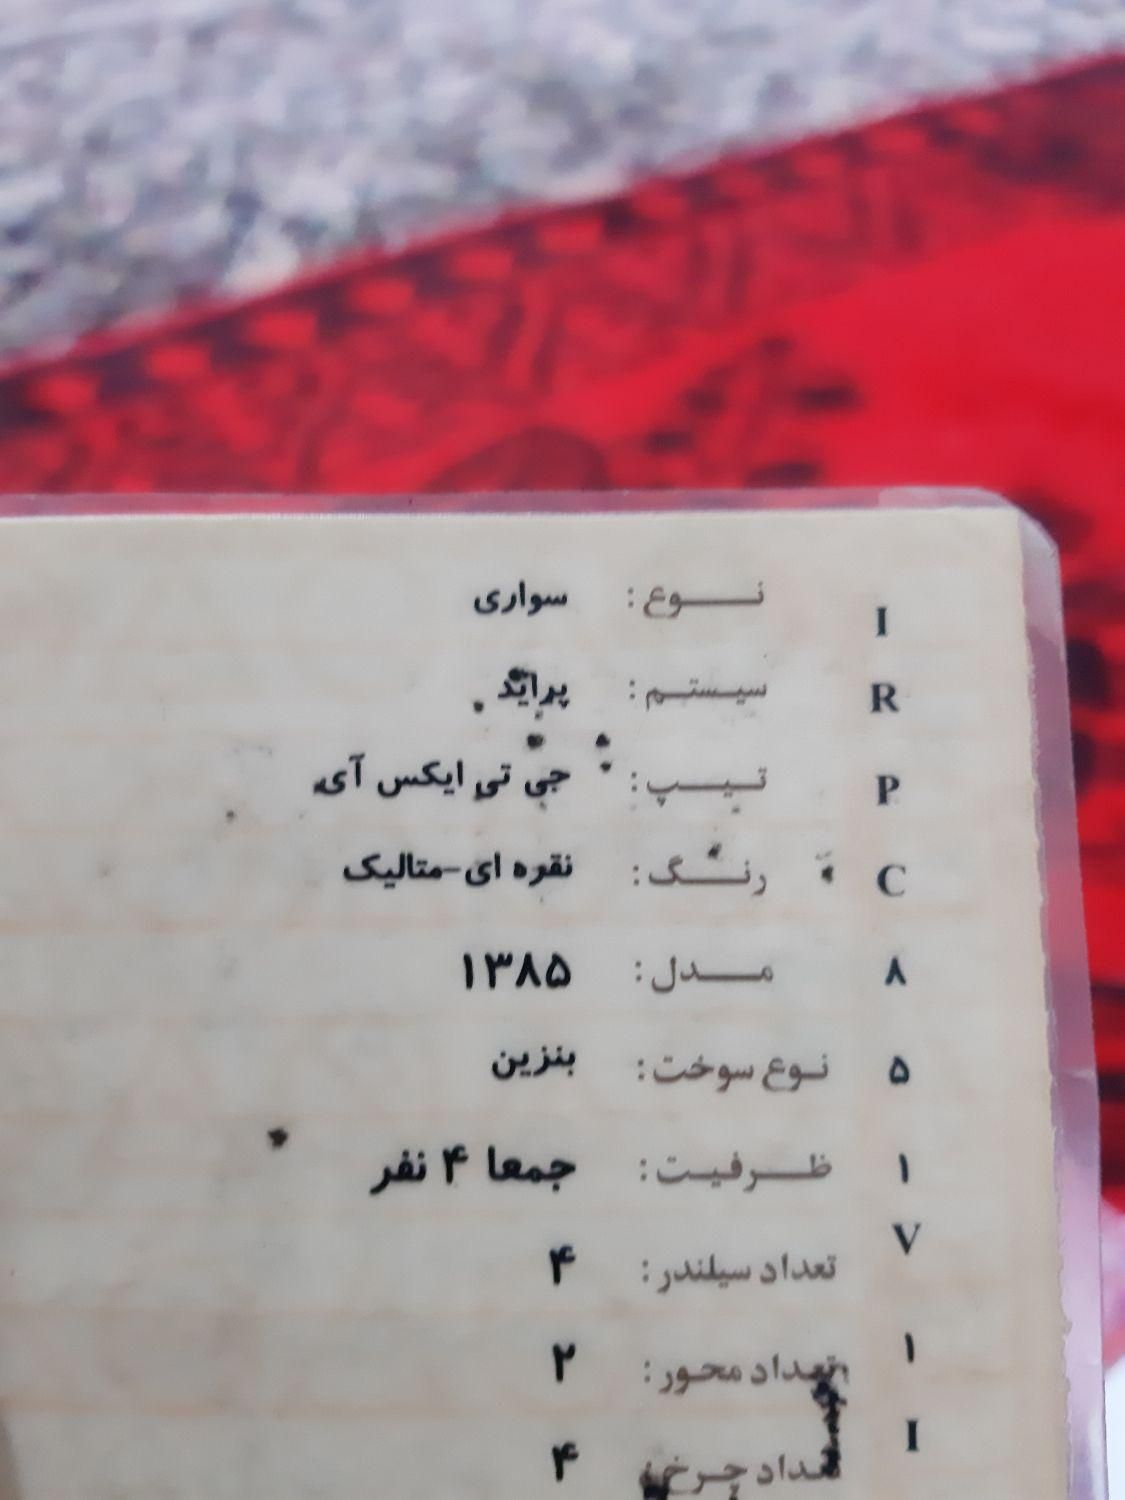 نوع : سواری
سیستم : پراید
تیپ : جی تی ایکس آی
رنگ : نقره ای-متالیک
مدل : ۱۳۸۵
نوع سوخت : بنزین
ظرفیت : جمعا ۴ نفر
تعداد سیلندر : ۴
تعداد محور : ۲
تعداد چرخ : ۴
I
R
P
C
۸
۵
۱
V
۱
I